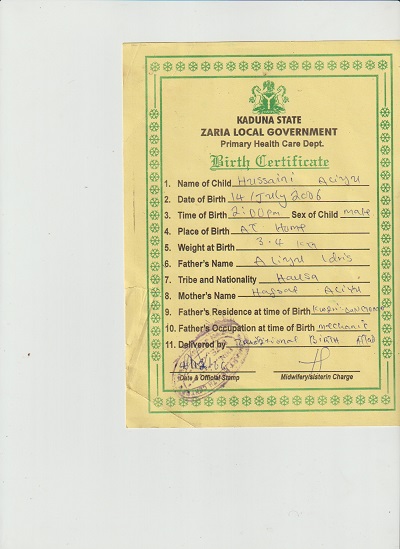 KADUNA STATE
ZARIA LOCAL GOVERNMENT
Primary Health Care Dept.
Birth Certificate
1. Name of Child Hussaini Aliyu
2. Date of Birth 14/July 2006
3. Time of Birth 2:00pm Sex of Child male
4. Place of Birth AT Home
5. Weight at Birth 3.4
6. Father's Name Aliyu Idris
7. Tribe and Nationality Hausa
8. Mother's Name Aliyu
9. Father's Residence at time of Birth
10. Father's Occupation at time of Birth mechanic
11. Delivered by Traditional Birth
Date & Official Stamp Midwifery/sisterin Charge